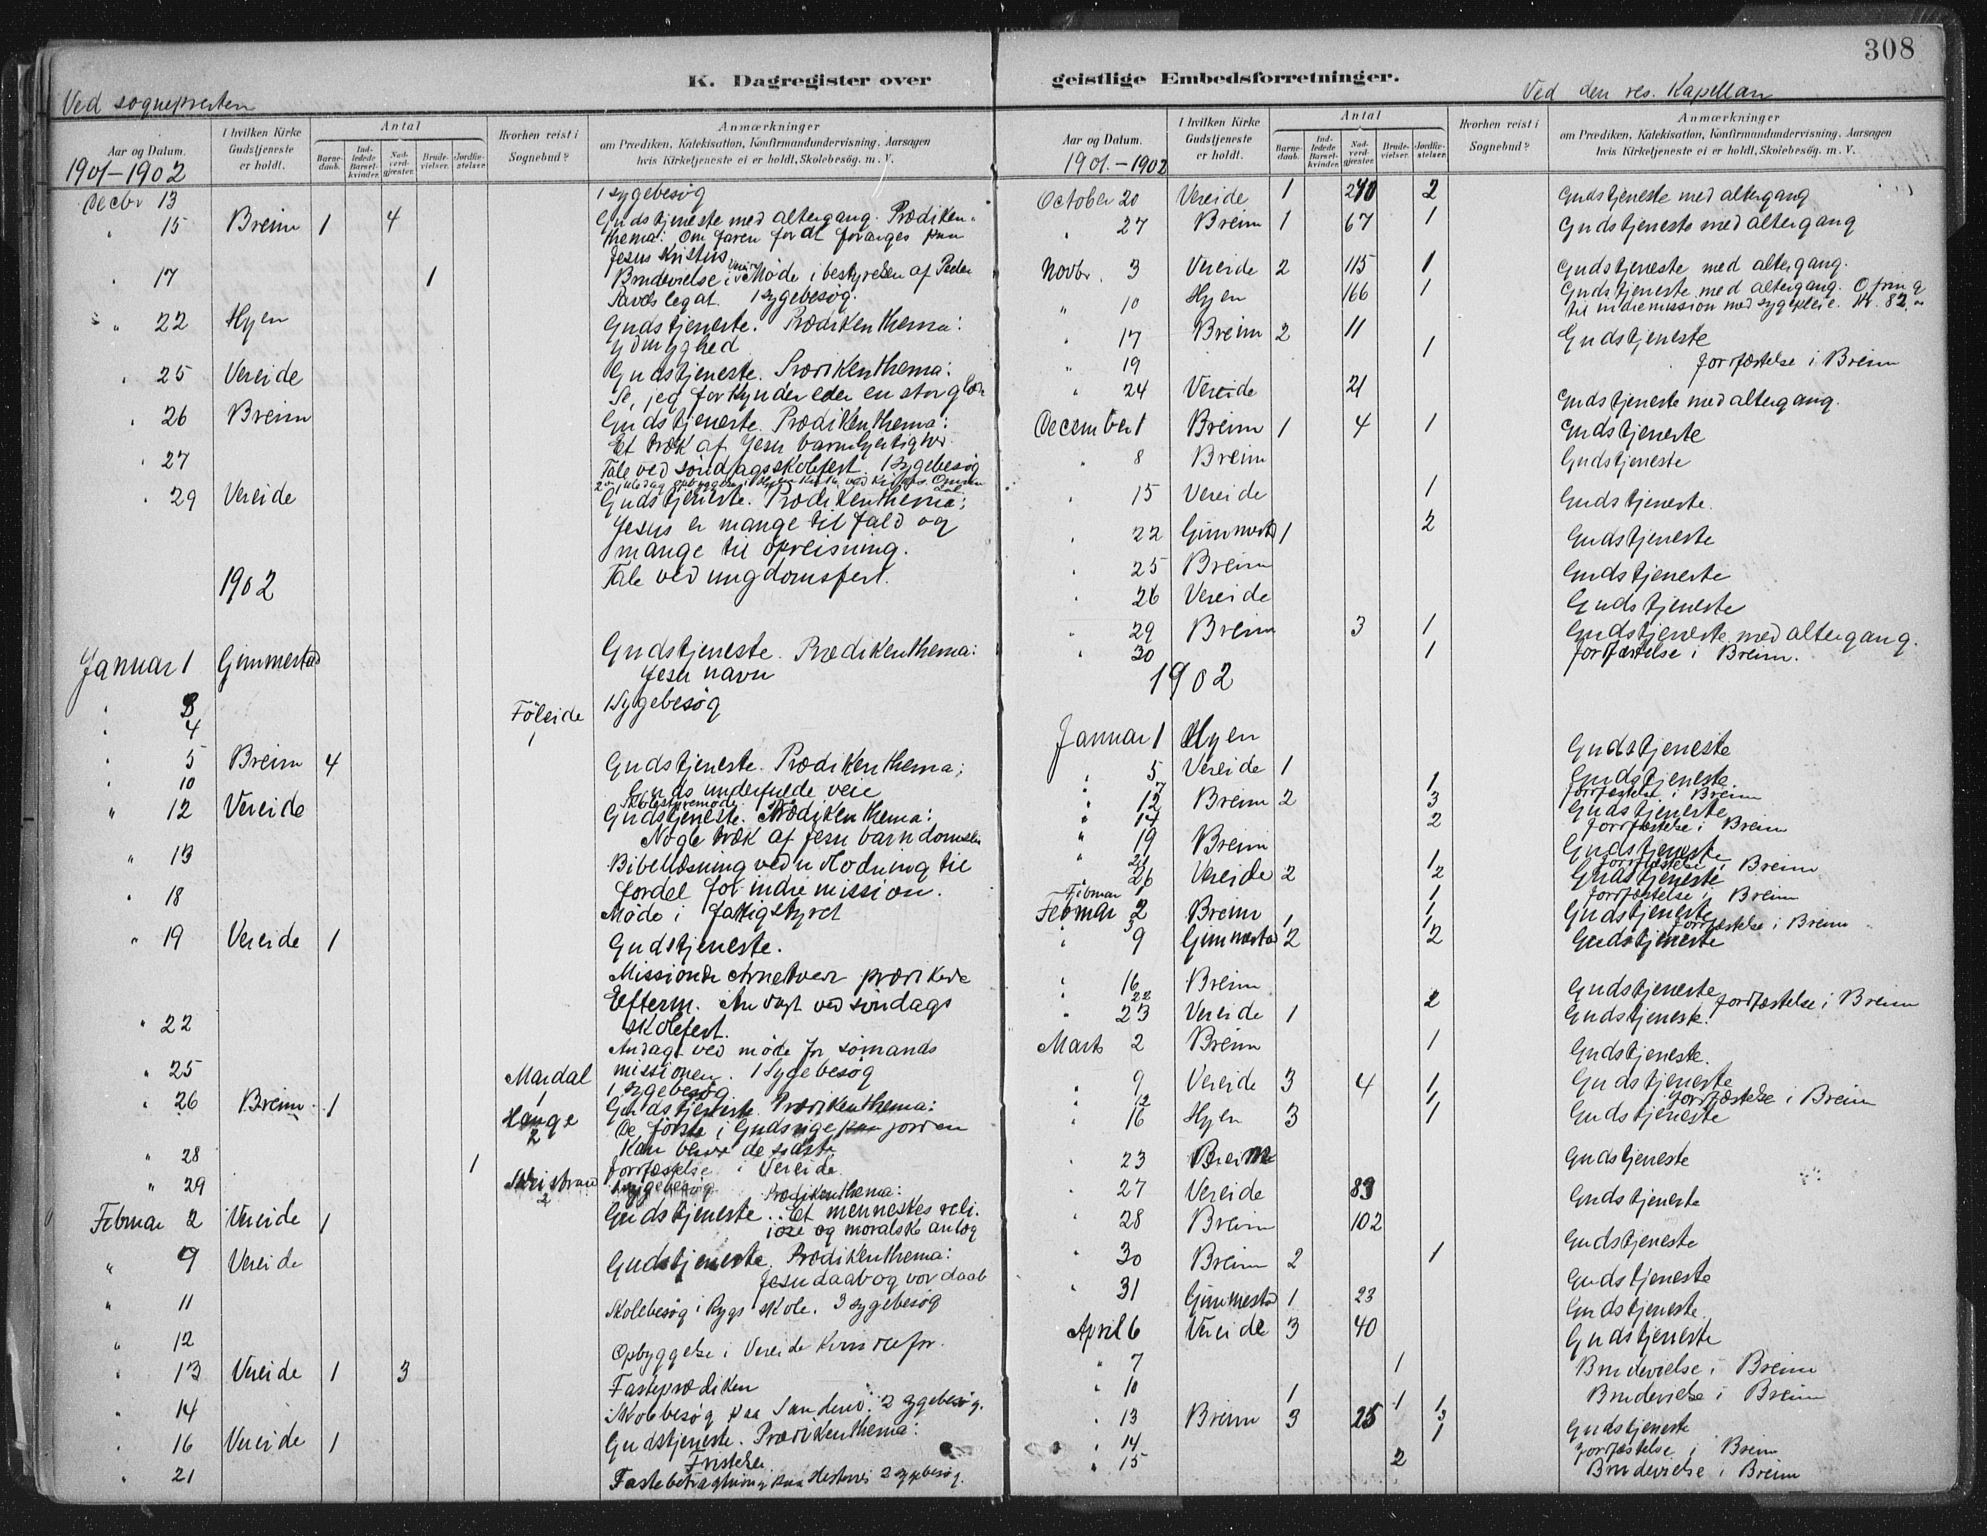 308
K. Dagregister over
geistlige Embedsforretninger.
Ved sognepresten
Aar og Datum.
I hvilken Kirke Gudstjeneste er holdt.
Antal
Barnedaab.
Indledede Barselkvinder.
Nadverdgjester.
Brudevielser.
Jordfæstelser.
Hvorhen reist i Sognebud?
Anmærkninger
om Prædiken, Katekisation, Konfirmandundervisning, Aarsagen
hvis Kirketjeneste ei er holdt, Skolebesøg. m. V.
1901-1902
Decbr 13 1 sygebesøg
" 15 Breim 1 4 Gudstjeneste med altergang. Prædiken-
thema: Om faren for at forarges paa
Jesus Kristus
" 17 1 Brudevielse i Vereide Møde i bestyrelsen af Peder
legat. 1 sygebesøg.
" 22 Hyen Gudstjeneste. Prædikenthema:
Ydmyghed
" 25 Vereide Gudstjeneste. Prædikenthema:
Se, jeg forkynder eder en stor glæde
" 26 Breim Gudstjeneste. Prædikenthema:
Et træk af Jesu barmhjertighed
" 27 Tale ved søndagsskolefest. 1 sygebesøg
" 29 Vereide Gudstjeneste. Prædikenthema:
Jesus er mange til fald og
mange til opreisning.
Tale ved ungdomsfest.
1902
Januar 1 Gimmestad Gudstjeneste. Prædikenthema:
Jesu navn
" 3 Føleide 1 1 Sygebesøg
" 4
" 5 Breim 4 Gudstjeneste. Prædikenthema:
Guds underfulde veie
" 10 Skolestyremøde
" 12 Vereide Gudstjeneste. Prædikenthema:
Nogle træk af Jesu barndomsliv
" 13 Bibellæsning ved utlodning til
fordel for indremission.
" 18 Møde i fattigstyret
" 19 Vereide 1 Gudstjeneste.
Missionær Arnetveit prædikede
Efterm. Andagt ved søndags
skolefest.
" 22 Andagt ved møde for sømands
missionen. 1 Sygebesøg
" 25 Mardal 1 1 sygebesøg
" 26 Breim 1 Hauge 2 Gudstjeneste. Prædikenthema:
De første i Guds rige paa jorden
kan blive de sidste
" 28 1 Jordfæstelse i Vereide
" 29 2 1 sygebesøg
Februar 2 Vereide 1 Gudstjeneste. Prædikenthema: Et menneskes reli-
iøse og moralske anlæg
" 9 Vereide Gudstjeneste. Prædikenthema:
Jesu daab og vor daab
" 11 Skolebesøg i Rygs skole. 3 sygebesøg
" 12 Opbyggelse i Vereide Kvindefor.
" 13 Vereide 1 3 Fasteprædiken
" 14 Skolebesøg paa Sandene. 2 sygebesøg.
" 16 Vereide 1 Gudstjeneste. Prædikenthema:
Fristelse
" 21 Fastebetragtning paa Hestenes 2 sygebesøg.
Ved den res. Kapellan
Aar og Datum.
I hvilken Kirke Gudstjeneste er holdt.
Antal
Barnedaab.
Indledede Barselkvinder.
Nadverdgjester.
Brudevielser.
Jordfæstelser.
Hvorhen reist i Sognebud?
Anmærkninger
om Prædiken, Katekisation, Konfirmandundervisning, Aarsagen
hvis Kirketjeneste ei er holdt, Skolebesøg. m. V.
1901.-1902
October 20 Vereide 1 240 2 Gudstjeneste med altergang
" 27 Breim 1 67 1 Gudstjeneste med altergang
Novbr. 3 Vereide 2 115 1 Gudstjeneste med altergang.
" 10 Hyen 166 1 Gudstjeneste med altergang. Ofring
til indremission med sygepleie. Kr. 82.
" 17 Breim 2 11 Gudstjeneste
" 19 1 Jordfæstelse i Breim
" 24 Vereide 21 Gudstjeneste med altergang.
December 1 Breim 1 4 1 Gudstjeneste
" 8 Breim Gudstjeneste
" 15 Vereide 1 Gudstjeneste.
" 22 Gimmestad 1 2 Gudstjeneste
" 25 Breim Gudstjeneste
" 26 Vereide Gudstjeneste
" 29 Breim 3 1 Gudstjeneste med altergang.
" 30 1 Jordfæstelse i Breim.
1902
Januar 1 Hyen Gudstjeneste
" 5 Vereide 1 Gudstjeneste.
" 7 1 Jordfæstelse i Breim
" 12 Breim 2 3 Gudstjeneste
" 14 2 Jordfæstelse i Breim
" 19 Breim Gudstjeneste
" 21 1 Jordfæstelse i Breim
" 26 Vereide 2 2 Gudstjeneste
Februar 1 1 Jordfæstelse i Breim
Februar 2 Breim 1 1 Gudstjeneste
" 3 1 Jordfæstelse i Breim
" 9 Gimmestad 2 2 Gudstjeneste
" 16 Breim Gudstjeneste
" 22 2 Jordfæstelse i Breim
" 23 Vereide 1 Gudstjeneste.
Marts 2 Breim 1 Gudstjeneste.
" 9 Vereide 3 4 1 Gudstjeneste
" 12 1 Jordfæstelse i Breim
" 16 Hyen 3 1 Gudstjeneste
" 23 Breim Gudstjeneste
" 27 Vereide 83 Gudstjeneste
" 28 Breim 102 Gudstjeneste
" 30 Breim 2 1 Gudstjeneste
" 31 Gimmestad 1 23 Gudstjeneste.
April 6 Vereide 3 40 Gudstjeneste
" 7 1 Brudevielse i Breim
" 10 1 1 Brudevielse i Breim
" 13 Breim 3 25 3 Gudstjeneste
" 14 1 Jordfæstelse i Breim
" 15 2 Brudevielse i Breim